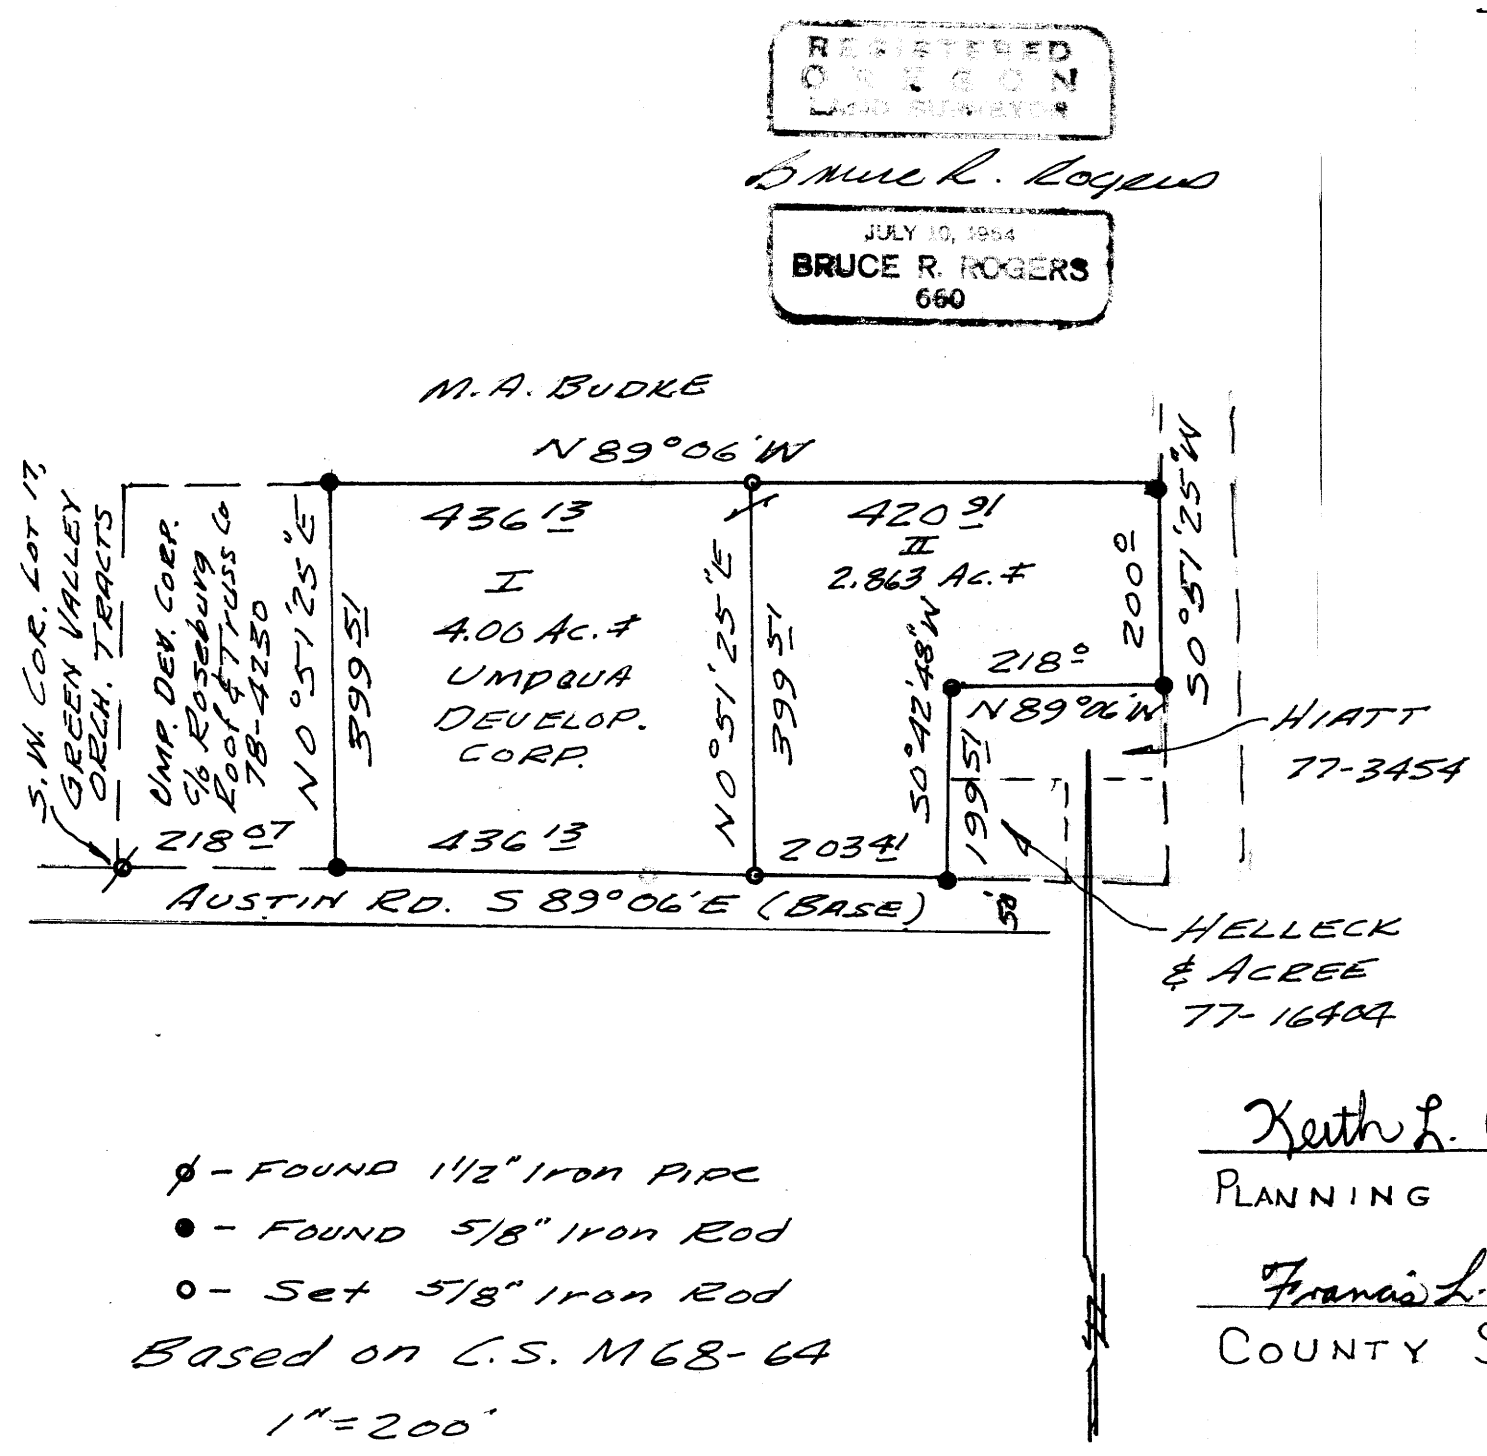 REGISTERED
OREGON
LAND SURVEYOR
Bruce R. Rogers
JULY 10, 1964
BRUCE R. ROGERS
660
M.A. BUDKE
N 89°06'W
S.W. COR. LOT 17,
GREEN VALLEY
ORCH. TRACTS
UMP. DEV. CORP.
c/o Roseburg
Roof & Truss Co
78-4230
218 07
N 0°51'25"E
399 51
436 13
I
4.00 Ac.±
UMPQUA
DEVELOP.
CORP.
436 13
N 0°51'25"E
399 51
420 91
II
2.863 Ac.±
200 0
S 0°51'25"W
218 0
N 89°06'W
S 0°42'48"W
199 51
203 41
HIATT
77-3454
AUSTIN RD. S 89°06'E (BASE)
50'
HELLECK
& ACREE
77-16404
ø - FOUND 1 1/2" Iron Pipe
● - FOUND 5/8" Iron Rod
o - Set 5/8" Iron Rod
Based on C.S. M68-64
1"=200'
Keith L.
PLANNING
Francis L.
COUNTY S